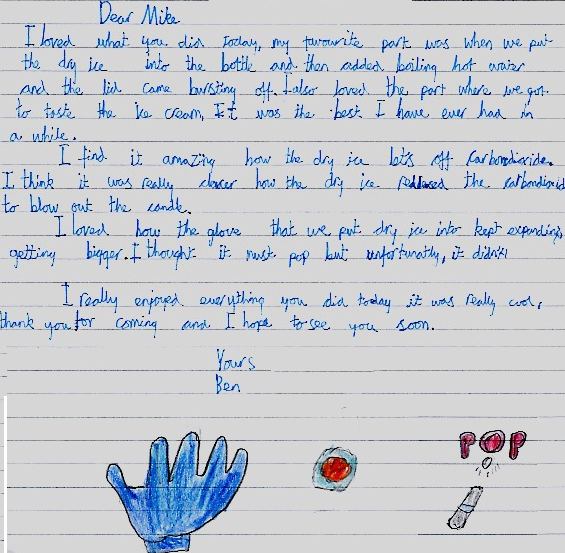 Dear Mike
I loved what you did today, my favourite part was when we put
the dry ice into the bottle and then added boiling hot water
and the lid came bursting off. I also loved the part where we got
to taste the ice cream, It was the best I have ever had in
a while.
I find it amazing how the dry ice let's off carbondioxide.
I think it was really clever how the dry ice released the carbondioxid
to blow out the candle.
I loved how the glove that we put dry ice into kept expanding,
getting bigger. I thought it must pop but unfortunatly, it didn't
I really enjoyed everything you did today it was really cool,
thank you for coming and I hope to see you soon.
Yours
Ben
POP